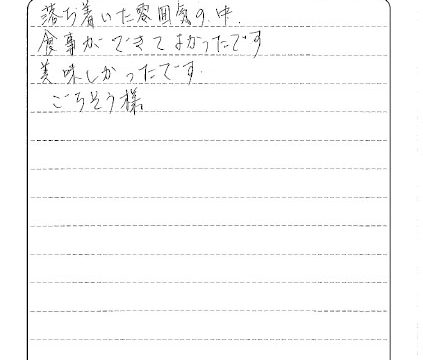 落ち着いた雰囲気の中.
食事ができてよかったです
美味しかったです.
ごちそう様